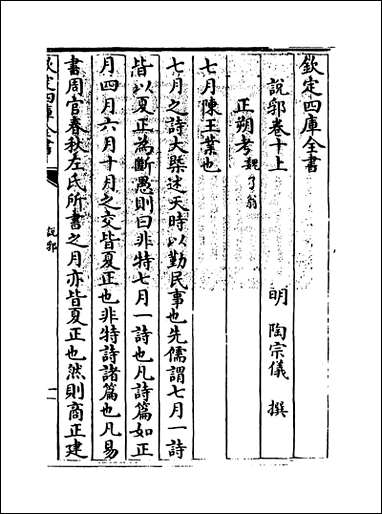 欽定四庫全書
說郛卷十上
明 陶宗儀 撰
正朔考 魏了翁
七月陳王業也
七月之詩大槩述天時以勤民事也先儒謂七月一詩
皆以夏正為斷愚則曰非特七月一詩也凡詩篇如正
月四月六月十月之交皆夏正也非特詩諸篇也凡易
書周官春秋左氏所書之月亦皆夏正也然則商正建
欽定四庫全書
說郛